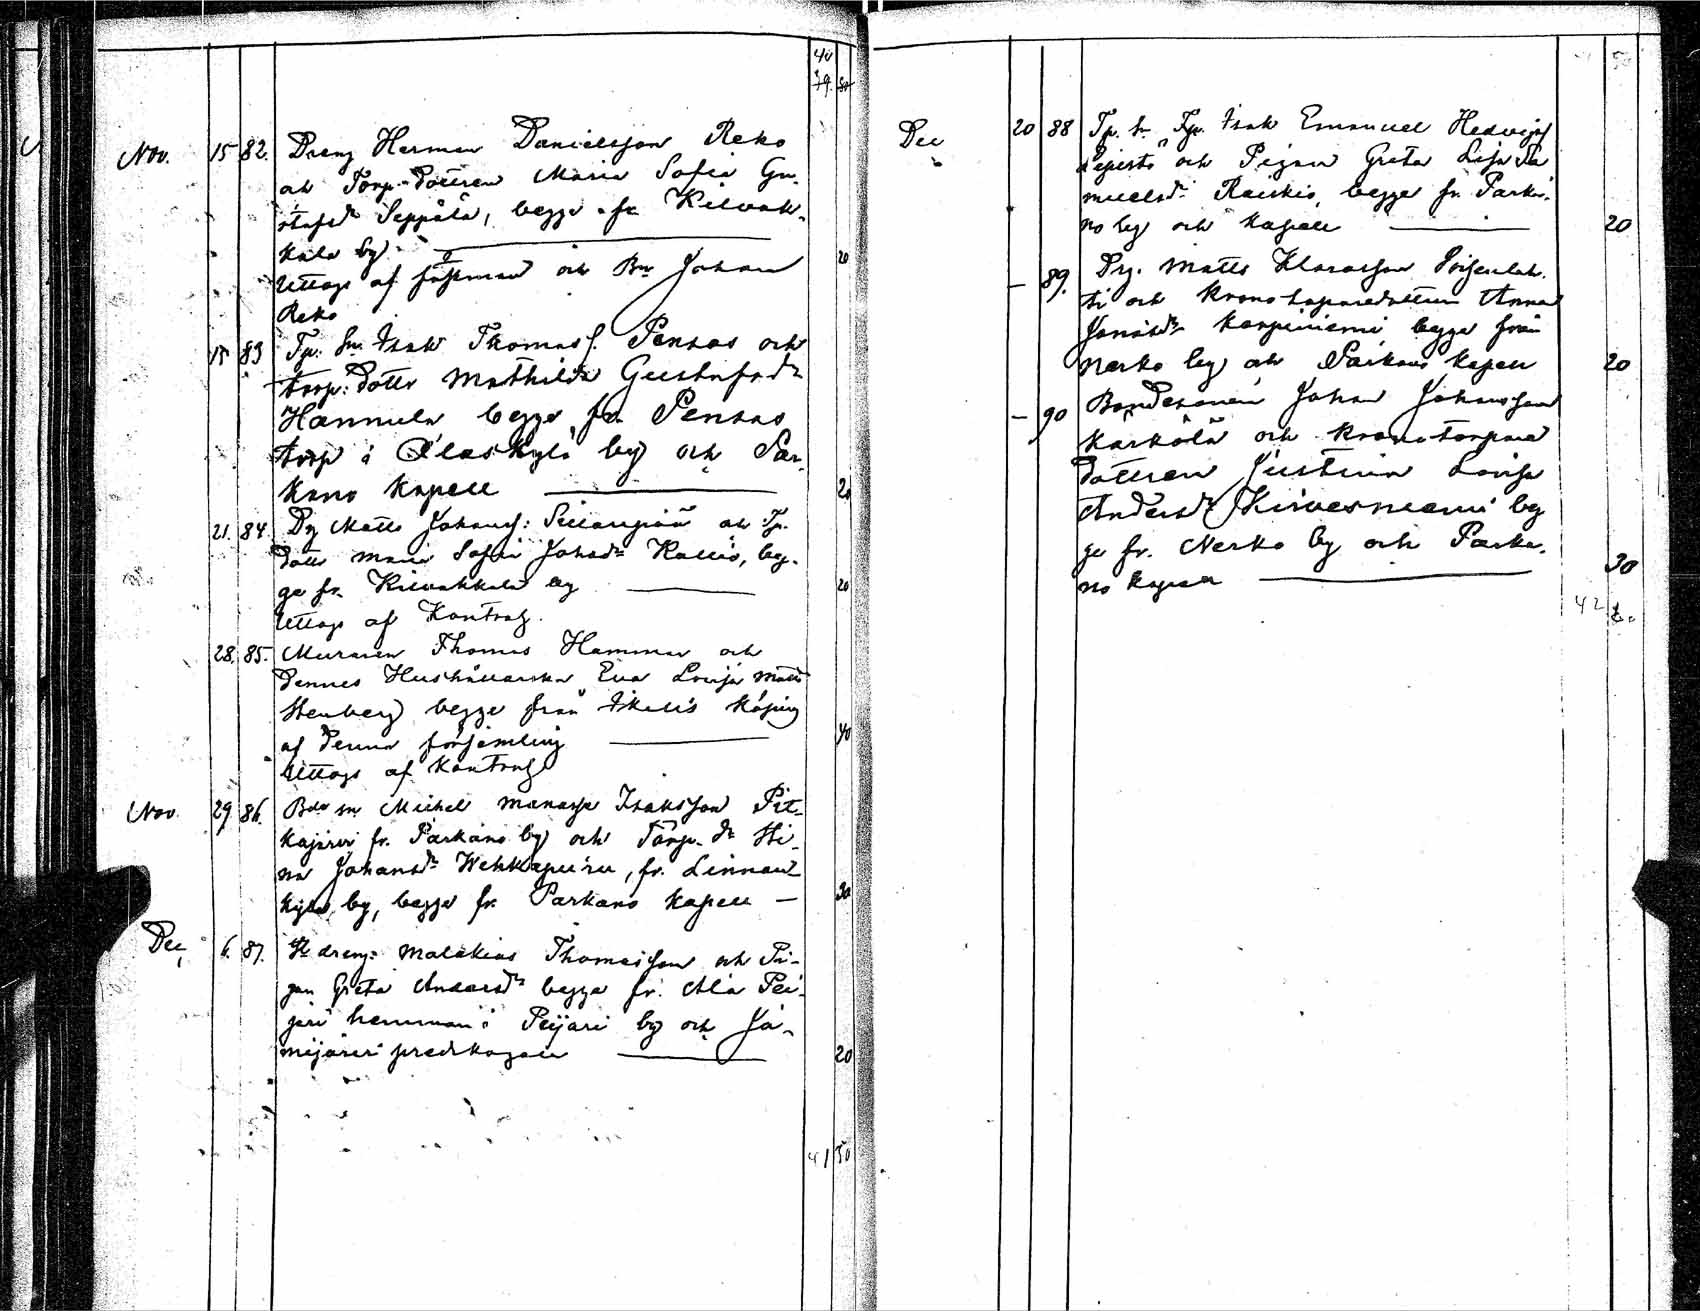 40
79. 80
Nov. 15 82. Dreng Herman Danielsson Reko
och Torp-Dottren Maria Sofia Gu-
stafsdr Seppälä, begge fr. Kilvak-
kala by. 20
Uttogs af fästman och Bn Johan
Reko
15 83 Tp. Sn. Isak Thomass. Pensas och
torp: Dottr Mathilda Gustafsdr
Hannula begge fr. Pensas
torp i Olaskylä by och Par-
kano kapell 20
21. 84. Dg Matts Johanss: Sillanpää och Tp.
Dottr Maria Sofia Johsdr Kallio, beg-
ge fr. Kilvakkala by 20
Uttogs af Kontrah.
28. 85. Muraren Thomas Hammar och
Dennes Hushållerska Eva Lovisa Matts
Stenberg begge från Ikalis Köping
af Denna församling 40
Uttogs af Kontrah
Nov. 29 86. Bde sn Michel Manasse Isaksson Pit-
käjärvi fr. Parkano by och Torp. dr Sti-
na Johansdr Wehkapuru, fr. Linnan-
kylä by, begge fr. Parkano kapell — 30
Dec. 6. 87. St dreng: Malakias Thomasson och Pi-
gan Greta Andersdr begge fr. Ala Pei-
jari hemman i Peijari by och Jä-
mijärvi predkogall 20
41 50
50
Dec 20 88 Tp. Sn Tp. Isak Emanuel Hedvigss
Leijerto och Pigan Greta Lisa Sa
muelsdr Raiskio, begge fr. Parka-
no by och kapell 20
— 89. Drg. Matts Klarasson
ti och Kronotorparedottren Anna
Jonasdr Karpiniemi begge från
Nerko by och Parkano kapell 20
— 90 Bondesonen Johan Johansson
Kärkölä och Kronotorpare
dottren Justina Lovisa
Andersdr Kirvesniemi beg
ge fr. Nerko by och Parka-
no kapell 30
42